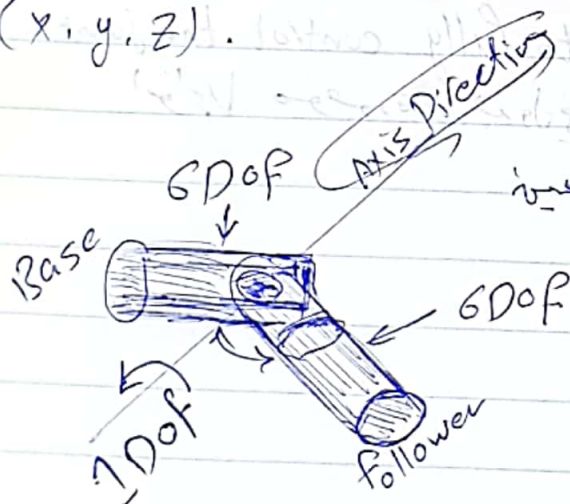 (x, y, z).
Axis Direction
6DOF
Base
6DOF
1DOF
follower